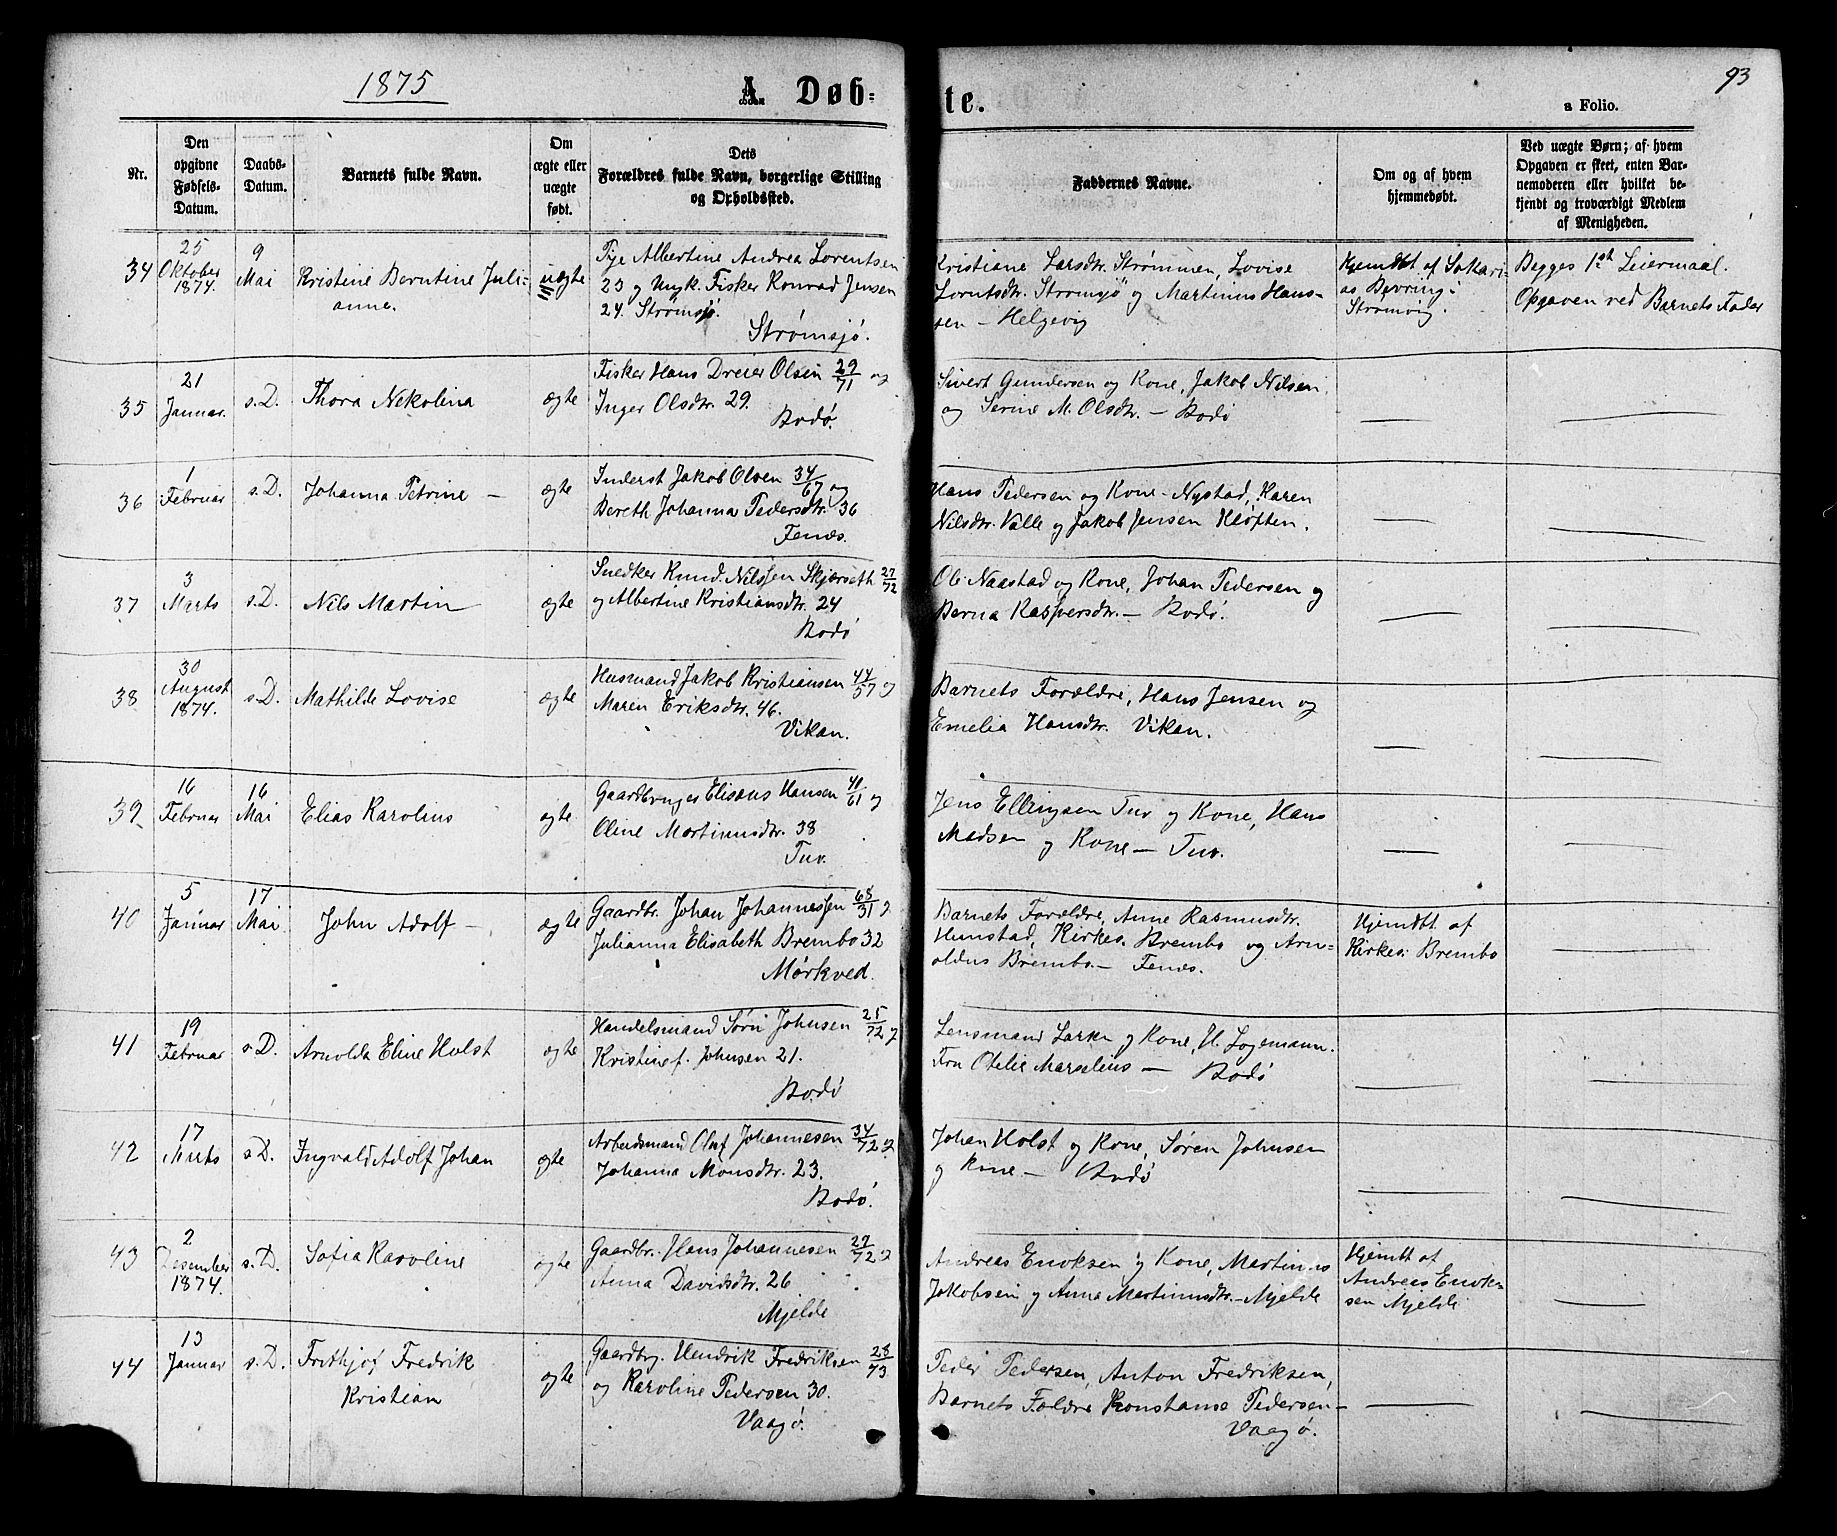 1875
A. Døb=
te.
93
a Folio.
Nr.
Den opgivne Fødsels-Datum.
Daabs-Datum.
Barnets fulde Navn.
Om ægte eller uægte født.
Dets Forældres fulde Navn, borgerlige Stilling og Opholdssted.
Faddernes Navne.
Om og af hvem hjemmedøbt.
Ved uægte Børn; af hvem Opgaven er skeet, enten Barnemoderen eller hvilket bekjendt og troværdigt Medlem af Menigheden.
34
25 Oktober 1874.
9 Mai
Kristine Berntine Juli-
anne.
uægte
Pige Albertine Andrea Lorentsen
23 og Ungk. Fisker Konrad Jensen
24. Strømsjø.
Strømsjø.
Kristiane Larsdtr. Strømmen, Lovise
Lorntsdtr. Strømsjø og Martinus Hans-
sen - Helgevig
Hjemdbt af Sakari-
as Bevring:
Strømvig.
Begges 1ste Leiermaal.
Opgaven ved Barnets Fader
35
21 Januar.
s.D.
Thora Nekolina
ægte
Fisker Hans Dreier Olsen 29/71 og
Inger Olsdtr. 29.
Bodø.
Sivert Gundersen og Kone, Jakob Nilsen,
og Serine M. Olsdtr. - Bodø
36
1 Februar
s.D.
Johanna Petrine -
ægte
Inderst Jakob Olsen 34/67 og
Bereth Johanna Pedersdtr. 36
Fenes.
Hans Pedersen og Kone - Nystad, Karen
Nilsdtr. Valle og Jakob Jensen Kløften.
37
3 Marts
s.D.
Nils Martin
ægte
Snedker Knud Nilssen Skjærseth 27/72
og Albertine Kristiansdtr. 24
Bodø
Ol. Naastad og Kone, Johan Pedersen og
Berna Kaspersdtr. - Bodø.
38
30 August 1874.
s.D.
Mathilde Lovise
ægte
Husmand Jakob Kristiansen 44/57 og
Maren Eriksdtr. 46.
Vikan.
Barnets Forældre, Hans Jensen og
Emelia Hansdtr. Vikan.
39
16 Februar
16 Mai
Elias Karolius
ægte
Gaardbruger Eliseus Hansen 41/61 og
Oline Martinusdtr. 38
Tuv.
Jens Ellingsen Tuv og Kone, Hans
Madsen og Kone - Tuv.
40
5 Januar
17 Mai
John Adolf -
ægte
Gaardbr. Johan Johannessen 68/31 og
Julianna Elisabeth Brembo 32
Mørkved.
Barnets Forældre, Anne Rasmusdtr.
Hunstad, Kirkes. Brembo og Arn=
oldus Brembo - Fenes.
Hjemdbt af
Kirkes: Brembo
41
19 Februar
s.D.
Arnolda Eline Holst
ægte
Handelsmand Sørn Johnsen 25/72 og
Kristine f. Johnsen 21.
Bodø
Lensmand Larke og Kone, H. Logemann.
Fru Otelie Marselius - Bodø
42
17 Marts
s.D.
Ingvald Adolf Johan
ægte
Arbeidsmand Oluf Johannesen 34/72 og
Johanna Monsdtr. 23.
Bodø.
Johan Holst og Kone, Søren Johnsen
og Kone - Bodø
43
2 Desember 1874.
s.D.
Sofia Karoline
ægte
Gaardbr. Hans Johannesen 27/72 og
Anna Davidsdtr. 26
Mjelde
Andreas Enoksen og Kone, Martinus
Jakobsen og Anne Martinusdtr. - Mjelde
Hjemdt af
Andreas Enok-
sen Mjelde
44
13 Januar
s.D.
Frithjof Fredrik
Kristian
ægte
Gaardbrg. Hendrik Fredriksen 28/73
og Karoline Pedersen 30.
Vaagø.
Peder Pedersen, Anton Fredriksen,
Barnets Foældre Konstanse Pedersen -
Vaagø.